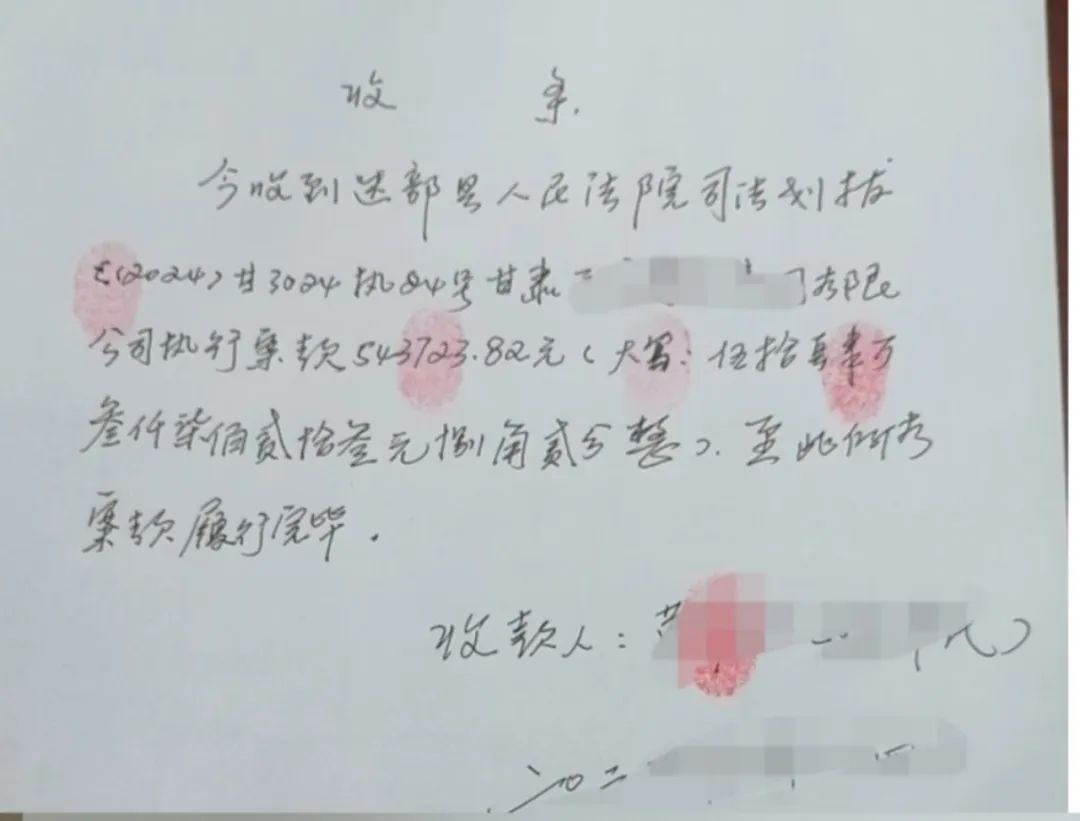 收 条
今收到迭部县人民法院司法划拔
(2024)甘3024执84号甘肃 有限
公司执行案款543723.82元(大写:伍拾肆万
叁仟柒佰贰拾叁元捌角贰分整)、至此所有
案款履行完毕.
收款人:
二